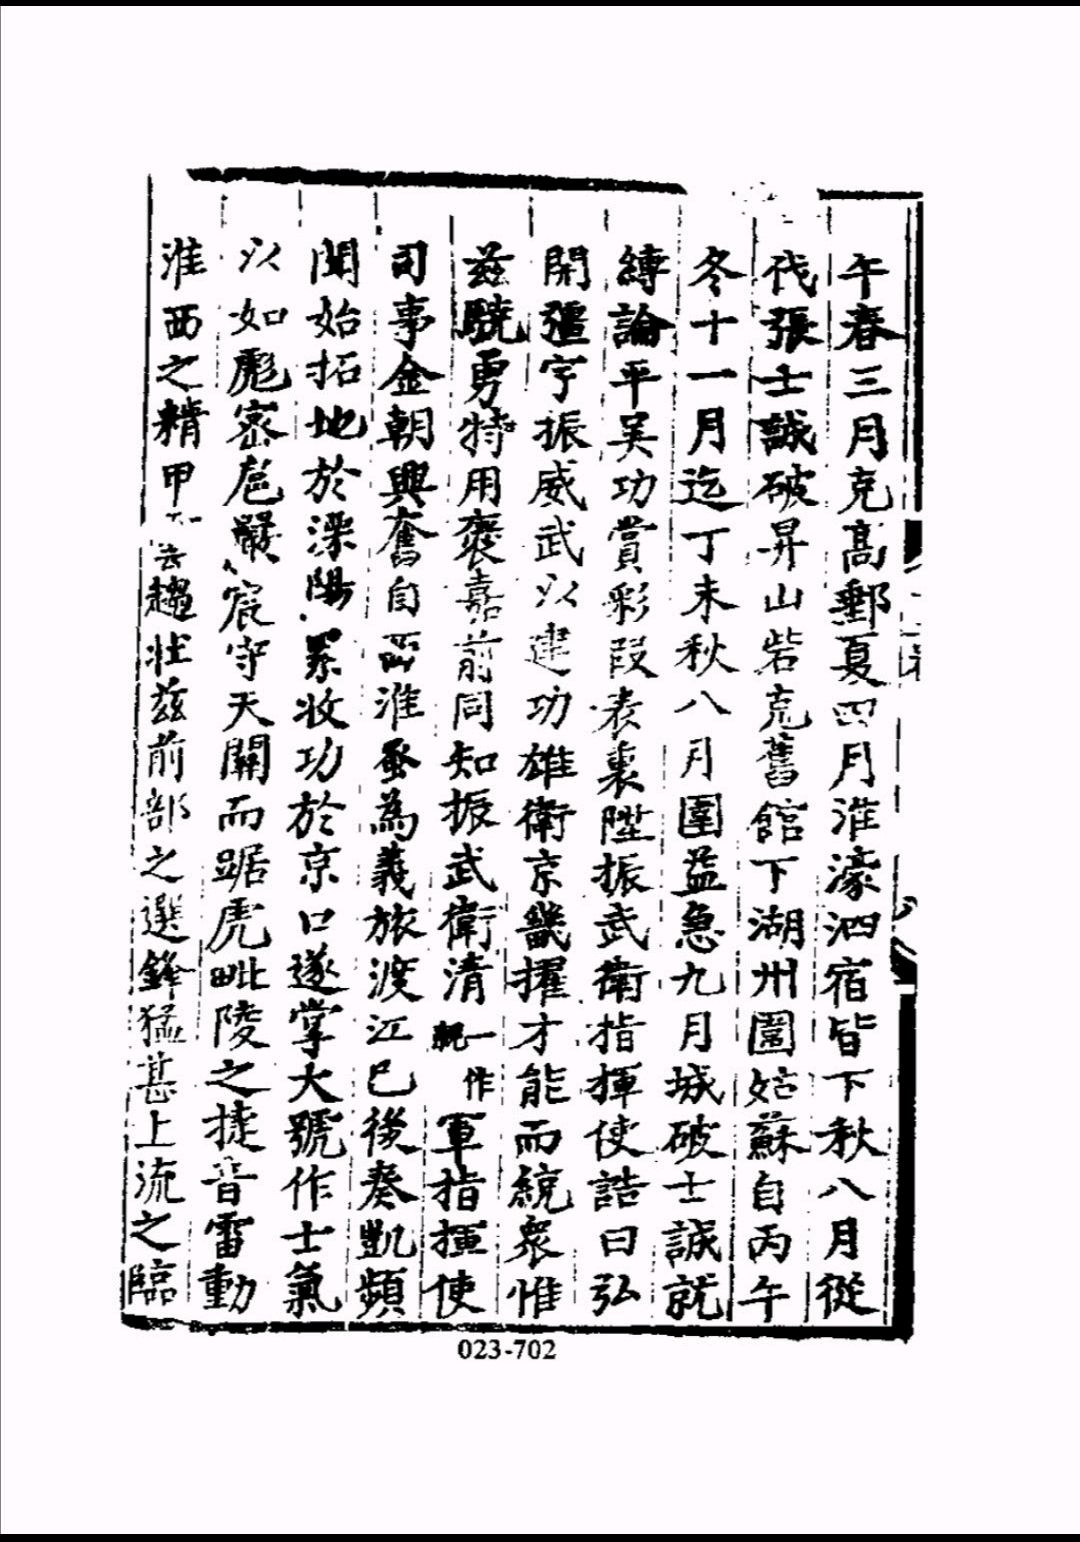 午春三月克高郵夏四月淮濠泗宿皆下秋八月從
伐張士誠破昇山砦克舊館下湖州圍姑蘇自丙午
冬十一月迄丁未秋八月圍益急九月城破士誠就
縛論平吴功賞彩段表裏陞振武衛指揮使誥曰弘
開疆宇振威武以建功雄衛京畿擢才能而統衆惟
兹驍勇特用褒嘉前同知振武衛清一作親軍指揮使
司事金朝興奮自西淮蚤為義旅渡江已後奏凱頻
聞始拓地於溧陽累收功於京口遂掌大號作士氣
以如彪密扈嚴宸守天關而踞虎毗陵之捷音雷動
淮西之精甲雲趨壮兹前部之選鋒猛甚上流之臨
023-702